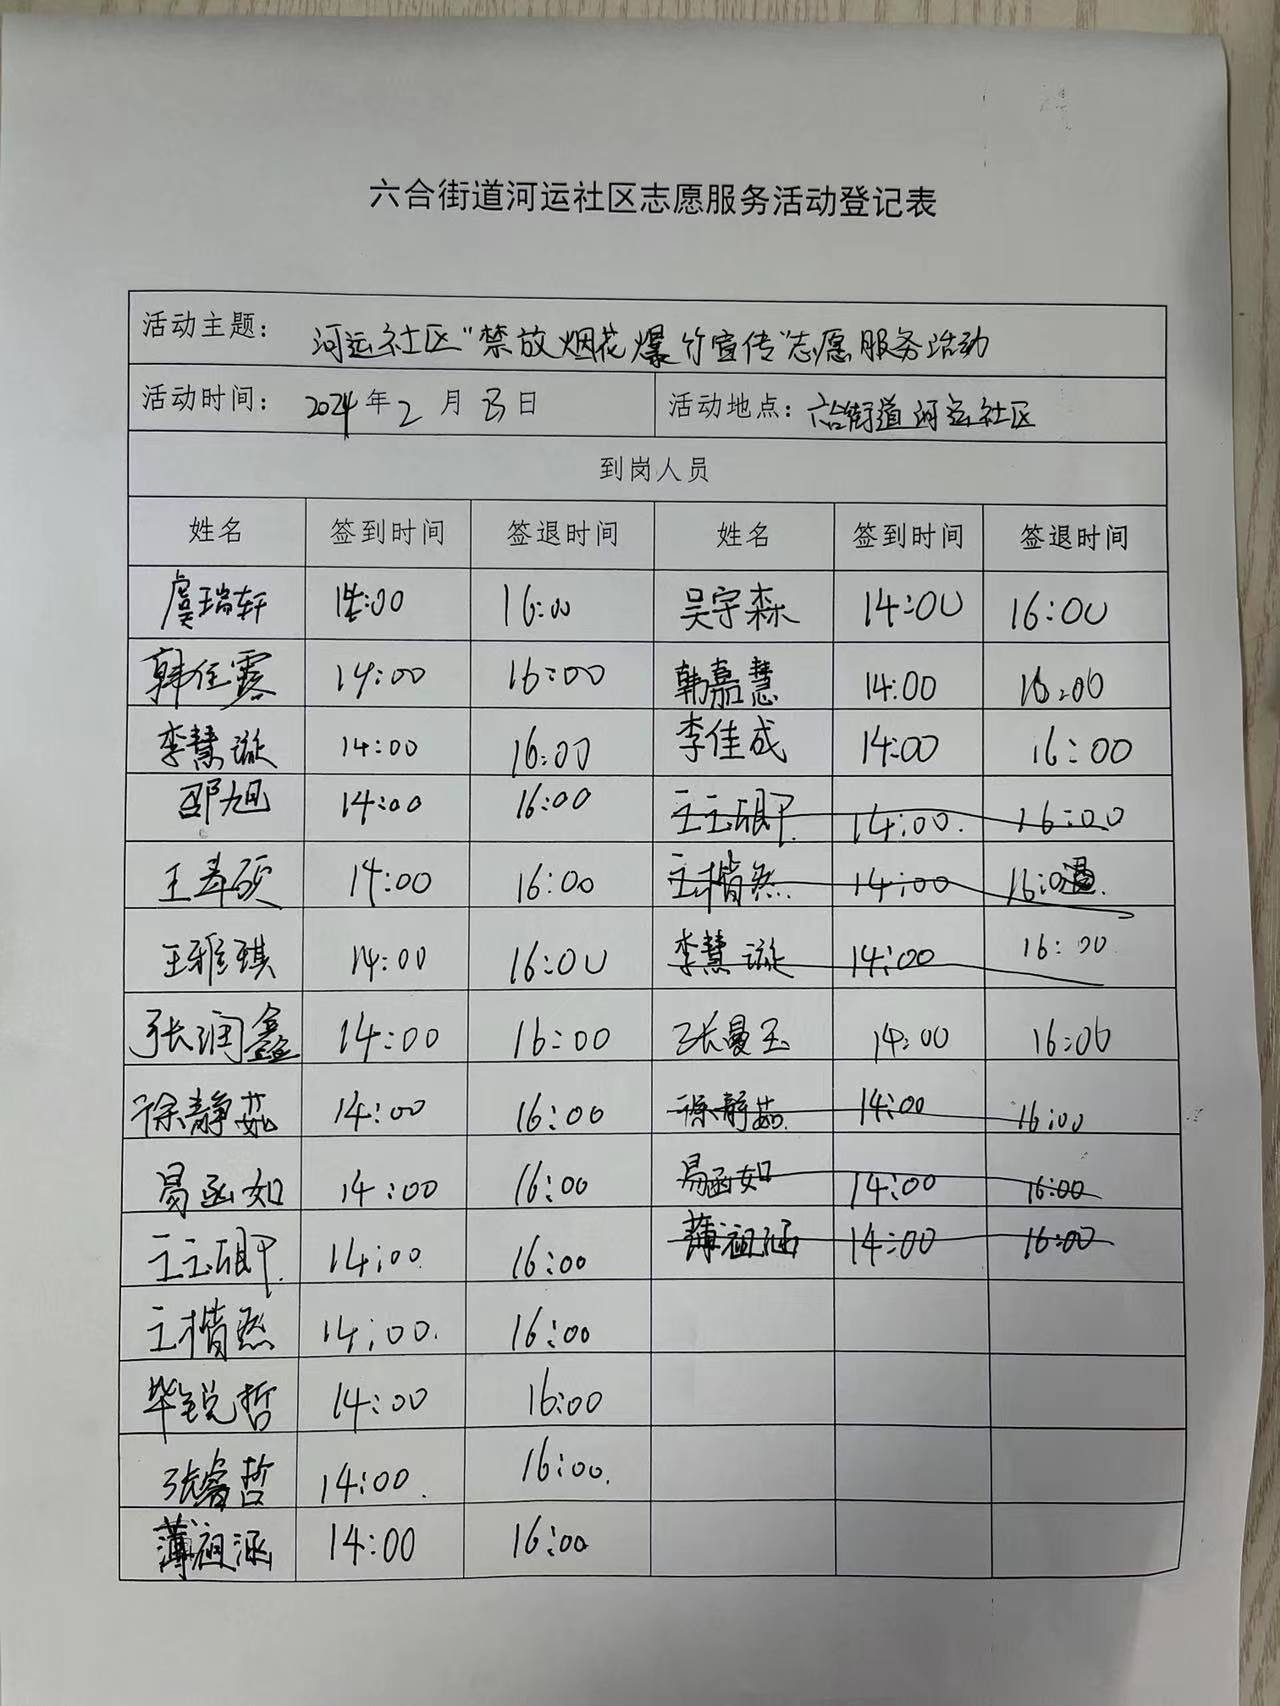 六合街道河运社区志愿服务活动登记表
活动主题： 河运社区“禁放烟花爆竹宣传”志愿服务活动
活动时间： 2024年2月 日 活动地点：六合街道河运社区
到岗人员
姓名 签到时间 签退时间 姓名 签到时间 签退时间
虞瑞轩 14:00 16:00 吴宇森 14:00 16:00
韩任露 14:00 16:00 韩嘉慧 14:00 16:00
李慧漩 14:00 16:00 李佳成 14:00 16:00
邵旭 14:00 16:00 14:00. 16:00
王寿硕 14:00 16:00 王楷然 14:00
王雅琪 14:00 16:00 李慧漩 14:00 16:00
张润鑫 14:00 16:00 张曼玉 14:00 16:00
徐静茹 14:00 16:00 徐静茹 14:00 16:00
易函如 14:00 16:00 易函如 14:00 16:00
14:00 16:00 薄祖涵 14:00 16:00
王楷然 14:00. 16:00
毕锐哲 14:00 16:00
张睿哲 14:00. 16:00.
薄祖涵 14:00 16:00